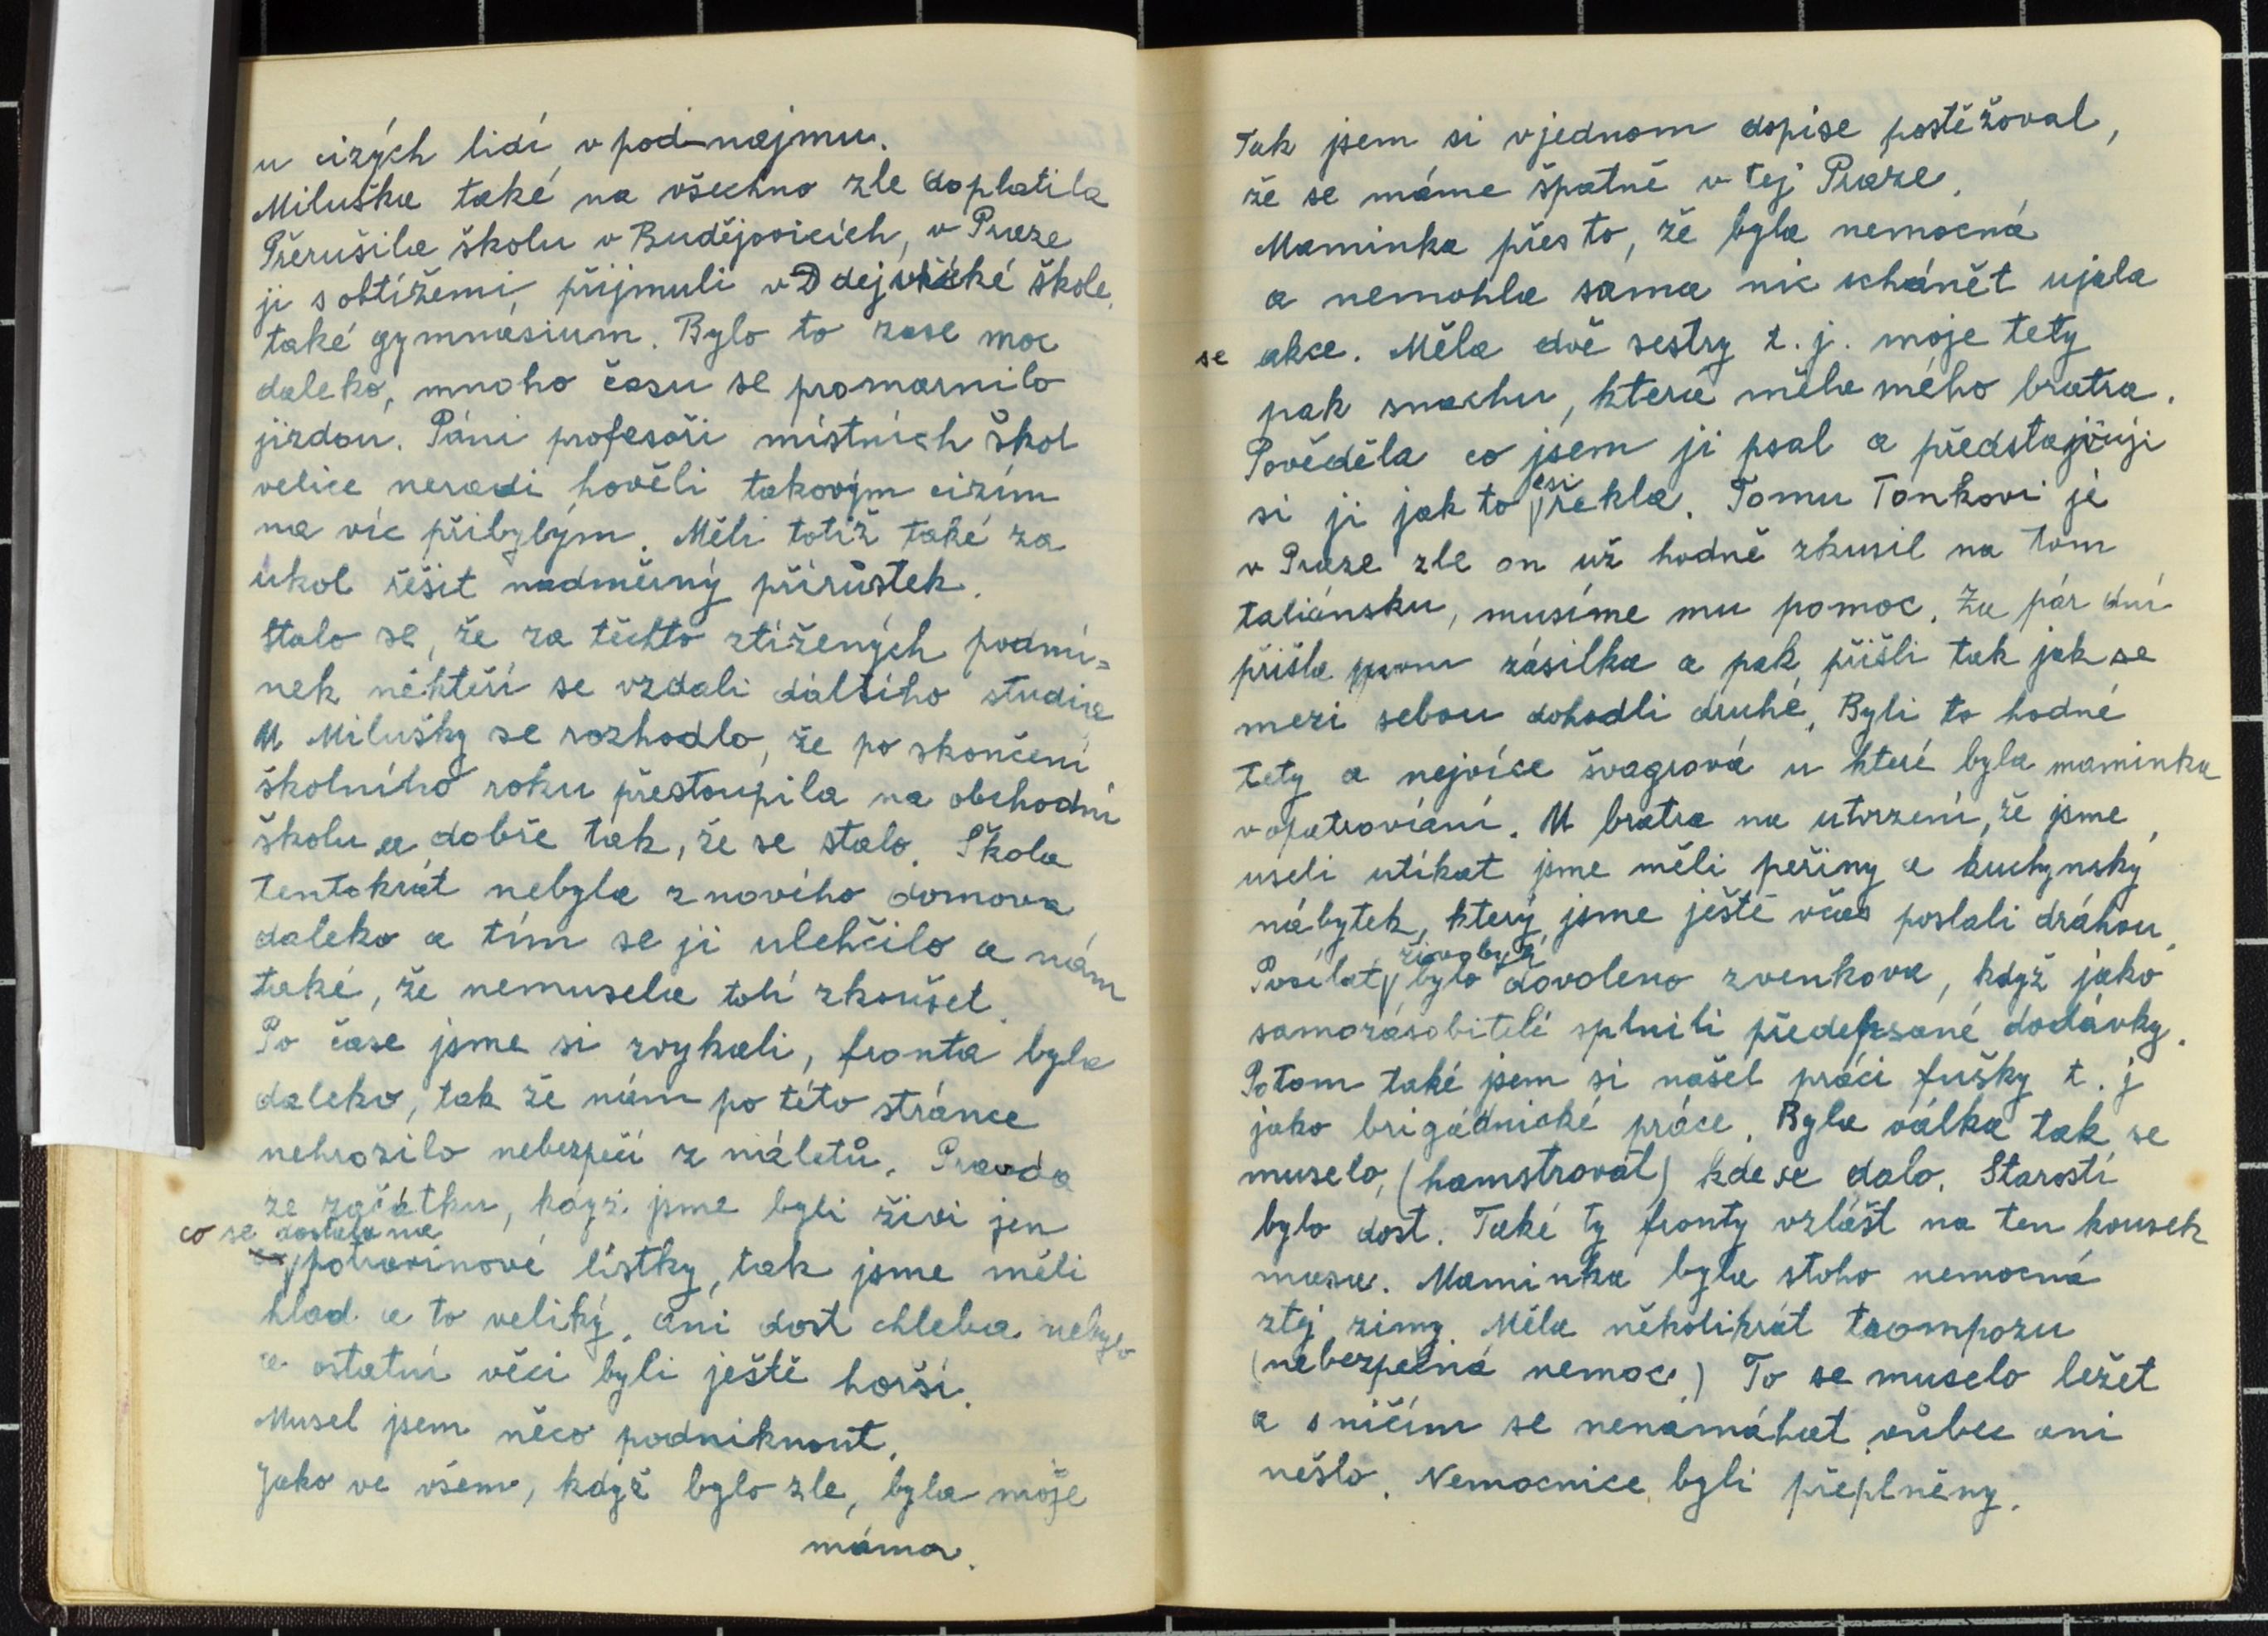 u cizých lidí v pod-najmu.
Miluška také na všechno zle doplatila
Přerušila školu v Budějovicích, v Praze
ji s obtížemi přijmuli v Ddejvické škole,
také gymnásium. Bylo to zase moc
daleko, mnoho času se promarnilo
jízdou. Páni profesoři místních škol
velice neradi hověli takovým cizím
na víc přibylým. Měli totiž také za
úkol řěšit nadměrný přírůstek.
Stalo se, že za těchto ztížených podmí=
nek někteří se vzdali dalšího studia
U Milušky se rozhodlo, že po skončení
školního roku přestoupila na obchodní
školu a dobře tak, že se stalo. Škola
tentokrát nebyla z nového domova
daleko a tím se ji ulehčilo a nám
také, že nemusela tolí zkoušet.
Po čase jsme si zvykali, fronta byla
daleko, tak že nám po této stránce
nehrozilo nebezpečí z náletů. Pravda
ze začátku, když jsme byli živi jen
co se dostalo na
potravinové lístky, tak jsme měli
hlad a to veliký. ani dost chleba nebylo
a ostatní věci byli ještě horší.
Musel jsem něco podniknout.
Jako ve všem, když bylo zle, byla moje
máma.
Tak jsem si v jednom dopise postěžoval,
že se máme špatně v tej Praze.
Maminka přes to, že byla nemocná
a nemohla sama nic schánět ujala
se akce. Měla dvě sestry t. j. moje tety
pak snachu, která měla mého bratra.
Pověděla co jsem ji psal a představuji
si ji jak to asi řekla. Tomu Tonkovi je
v Praze zle on už hodně zkusil na tom
taliánsku, musíme mu pomoc. Za pár dní
přišla první zásilka a pak přišli tak jak se
mezi sebou dohodli druhé. Byli to hodné
tety a nejvíce švagrová u které byla maminka
v opatrování. U bratra na utvrzení, že jsme
useli utíkat jsme měli peřiny a kuchynský
nábytek, který jsme ještě včas poslali dráhou.
živobytí
Posílat bylo dovoleno zvenkova, když jako
samozásobitelé splnili předepsané dodávky.
Potom také jsem si našel práci fušky t. j
jako brigádnické práce. Byla válka tak se
muselo, (hamstrovat) kde se dalo. Starostí
bylo dost. Také ty fronty vzlášt na ten kousek
masa. Maminka byla stoho nemocná
ztej zimy. Měla několikrát trompozu
(nebezpečná nemoc.) To se muselo ležet
a sničím se nenamáhat vůbec ani
nešlo. Nemocnice byli přeplněny.